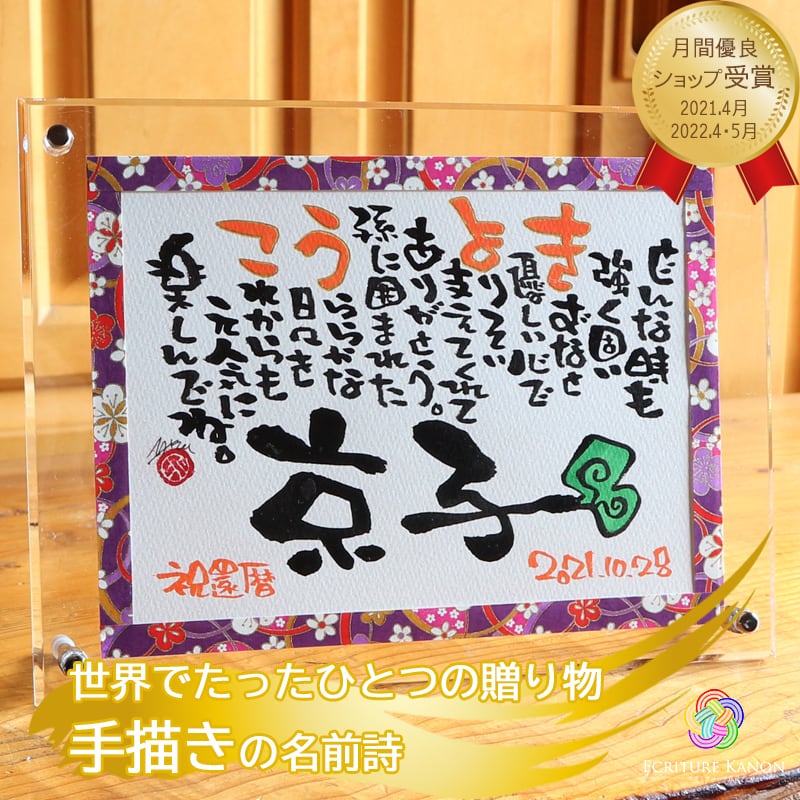 月間優良
ショップ受賞
2021.4月
2022.4・5月
どんな時も
強く固い
きずなと
優しい心で
よりそい
支えてくれて
ありがとう。
孫に囲まれた
うららかな
日々を
これからも
元気に
楽しんでね。
京子
祝還暦
2021.10.28
世界でたったひとつの贈り物
手描きの名前詩
ECRITURE KANON